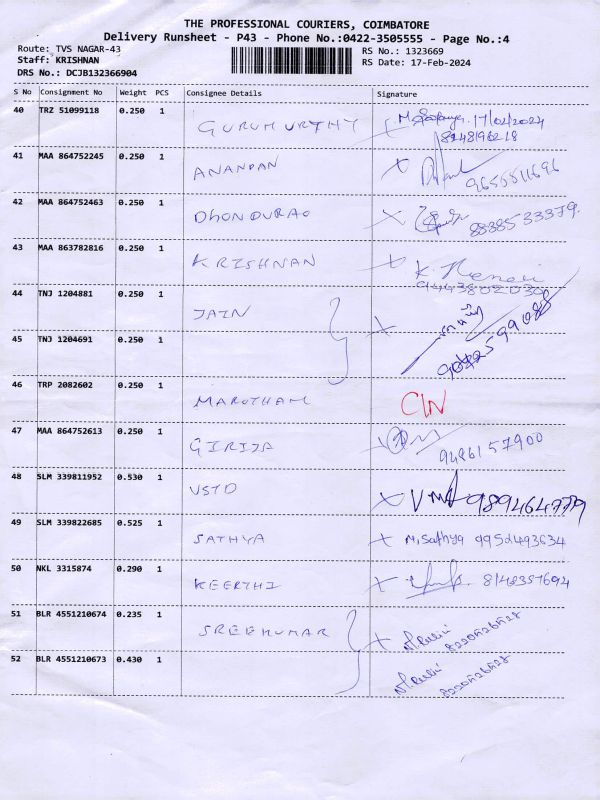 THE PROFESSIONAL COURIERS, COIMBATORE
Delivery Runsheet - P43 - Phone No.:0422-3505555 - Page No.:4
Route: TVS NAGAR-43 RS No.: 1323669
Staff: KRISHNAN RS Date: 17-Feb-2024
DRS No.: DCJB132366904
S No Consignment No Weight PCS Consignee Details Signature
40 TRZ 51099118 0.250 1 GURUMURTHY 17/02/2024
8248196218
41 MAA 864752245 0.250 1 ANANDAN 9655511696
42 MAA 864752463 0.250 1 DHONDURAO 8838533379
43 MAA 863782816 0.250 1 KRISHNAN K.
44 TNJ 1204881 0.250 1 JAIN
45 TNJ 1204691 0.250 1
46 TRP 2082602 0.250 1 MAROTHAM C/N
47 MAA 864752613 0.250 1 GIRIJA 9486157900
48 SLM 339811952 0.530 1 VSTD 9894647779
49 SLM 339822685 0.525 1 SATHYA M.Sathya 9952493634
50 NKL 3315874 0.290 1 KEERTHI
51 BLR 4551210674 0.235 1 SREEKUMAR
52 BLR 4551210673 0.430 1